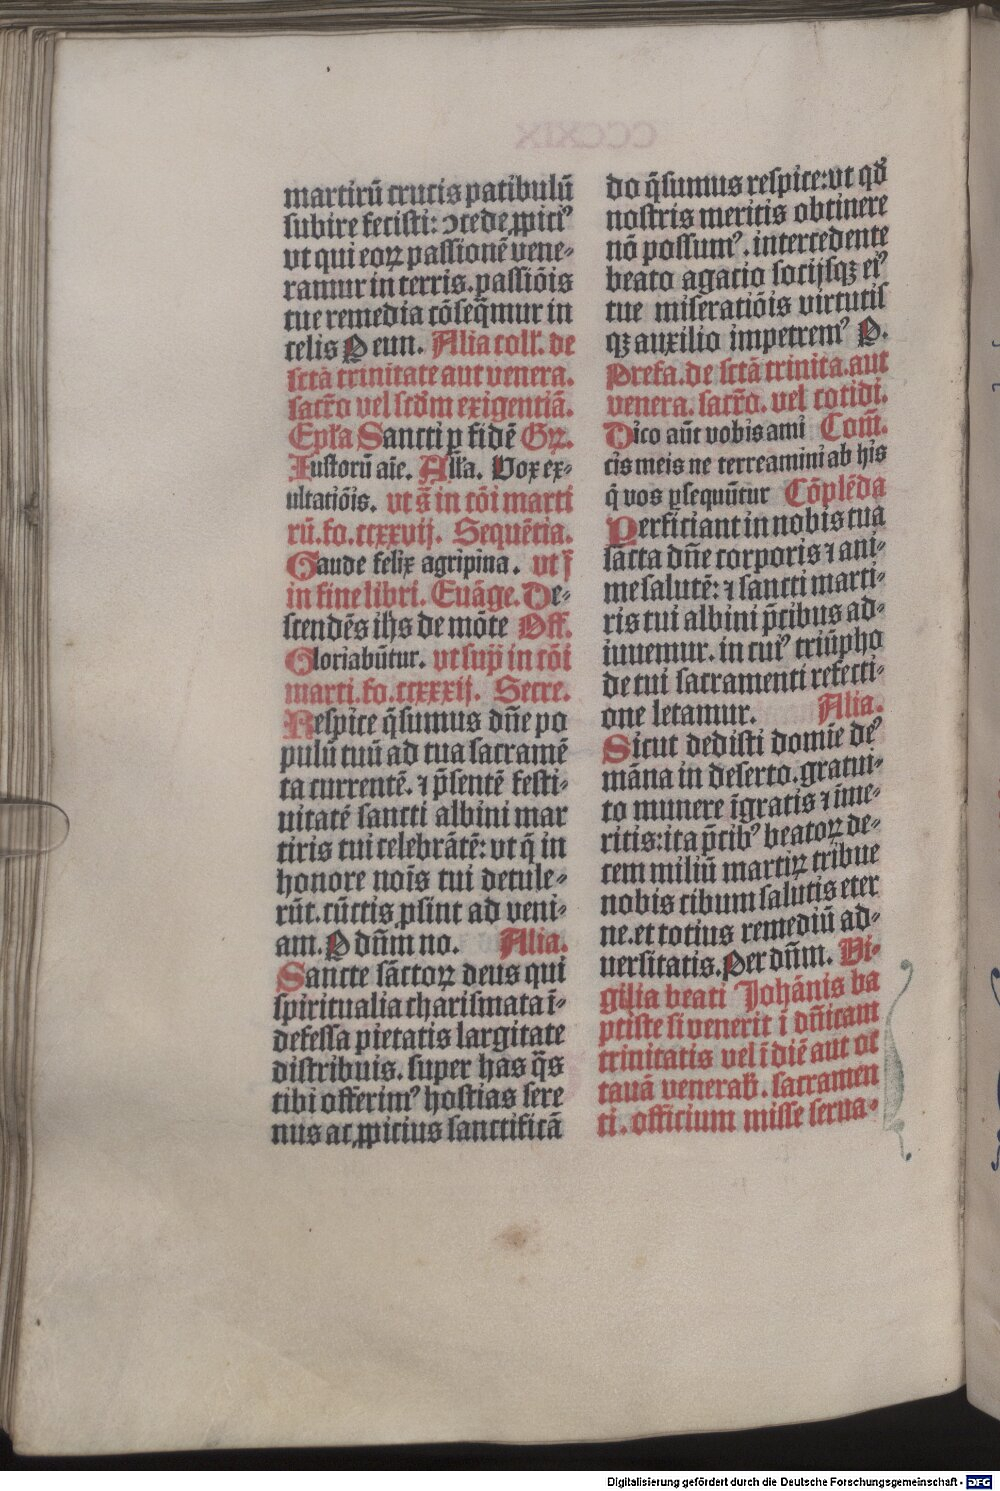 martirū crucis patibulū
subire fecisti: ↄcede ꝓpici⁹
vt qui eoꝝ passionē vene-
ramur in terris. passiōis
tue remedia cōseq̄mur in
celis P eun. Alia coll'. de
sctā trinitate aut venera.
sacr̄o vel scd̄m exigentiā.
Ep̄la Sancti ꝑ fidē Gꝝ.
Iustorū aīe. All'a. Vox ex-
ultatiōis. vt s̄ in cōi marti
rū. fo. ccxxvij. Sequētia.
Gaude felix agripina. vt ſ
in fine libri. Euāge. De-
scendēs ihs de mōte Off.
Gloriabūtur. vt sup̄ in cōi
marti. fo. ccxxxij. Secre.
Respice q̄sumus dn̄e po
pulū tuū ad tua sacramē
ta currentē. ⁊ p̄sentē festi-
uitatē sancti albini mar
tiris tui celebrātē: vt q̄ in
honore noīs tui detule-
rūt. cūctis ꝓsint ad veni-
am. P dn̄m no. Alia.
Sancte sāctoꝝ deus qui
spiritualia charismata ī-
defessa pietatis largitate
distribuis. super has q̄s
tibi offerim⁹ hostias sere
nus ac ꝓpicius sanctificā
do q̄sumus respice: vt qd̄
nostris meritis obtinere
nō possum⁹. intercedente
beato agacio socijsqꝫ ei⁹
tue miseratiōis virtutis
qꝫ auxilio impetrem⁹ P.
Prefa. de sctā trinita. aut
venera. sacr̄o. vel cotidi.
Dico aūt vobis ami Com̄.
cis meis ne terreamini ab his
q̄ vos ꝑsequūtur Cōplēda
Perficiant in nobis tua
sācta dn̄e corporis ⁊ ani-
me salutē: ⁊ sancti marti-
ris tui albini p̄cibus ad-
iuuemur. in cui⁹ triūpho
de tui sacramenti refecti-
one letamur. Alia.
Sicut dedisti domīe de⁹
māna in deserto. gratui-
to munere īgratis ⁊ īme-
ritis: ita p̄cib⁹ beatoꝝ de-
cem miliū martiꝝ tribue
nobis cibum salutis eter
ne. et totius remediū ad-
uersitatis. Per dn̄m. Vi-
gilia beati Johānis ba
ptiste si venerit ī dn̄icam
trinitatis vel ī diē aut oc
tauā venerab̄. sacramen
ti. officium misse serua-
CCCXIX
Digitalisierung gefördert durch die Deutsche Forschungsgemeinschaft - DFG